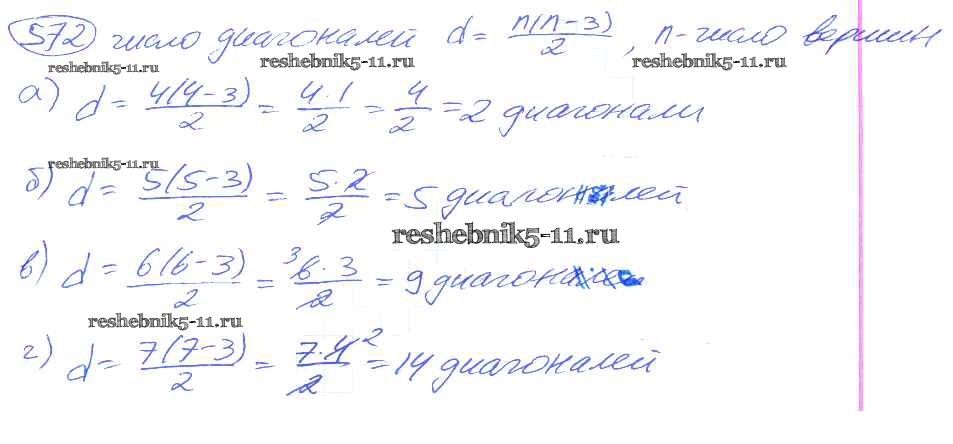 572 число диагоналей d = n(n-3)/2, n - число вершин
reshebnik5-11.ru reshebnik5-11.ru reshebnik5-11.ru
а) d = 4(4-3)/2 = 4·1/2 = 4/2 = 2 диагонали
reshebnik5-11.ru
б) d = 5(5-3)/2 = 5·2/2 = 5 диагоналей
reshebnik5-11.ru
в) d = 6(6-3)/2 = ³6·3/2 = 9 диагонале
reshebnik5-11.ru
г) d = 7(7-3)/2 = 7·4²/2 = 14 диагоналей